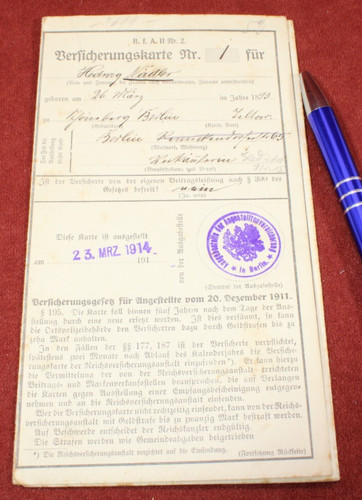 R. f. A. II Nr. 2.
Versicherungskarte Nr. 1 für
Hedwig Nädler
geboren am 26 März im Jahre 1893
zu Schöneberg Berlin Teltow
Berlin
Verkäuferin
Ist der Versicherte von der eigenen Beitragsleistung nach § 390 des
Gesetzes befreit? nein
(Ja, nein)
Diese Karte ist ausgestellt
23. MRZ 1914
am 191
von der Ausgabestelle
in Berlin.
(Stempel der Ausgabestelle)
Versicherungsgesetz für Angestellte vom 20. Dezember 1911.
§ 195. Die Karte soll binnen fünf Jahren nach dem Tage der Aus-
stellung durch eine neue ersetzt werden. Ist dies versäumt, so kann
die Ortspolizeibehörde den Versicherten dazu durch Geldstrafen bis zu
zehn Mark anhalten.
In den Fällen der §§ 177, 187 ist der Versicherte verpflichtet,
spätestens zwei Monate nach Ablauf des Kalenderjahrs die Versiche-
rungskarte der Reichsversicherungsanstalt einzureichen*). Er kann hierzu
die Vermittelung der von der Reichsversicherungsanstalt errichteten
Beitrags- und Markenverkaufsstellen beanspruchen, die auf Verlangen
die Karten gegen Ausstellung einer Empfangsbescheinigung entgegenzu-
nehmen und an die Reichsversicherungsanstalt einzusenden haben.
Wer die Versicherungskarte nicht rechtzeitig einsendet, kann von der Reichs-
versicherungsanstalt mit Geldstrafe bis zu zwanzig Mark bestraft werden.
Auf Beschwerde entscheidet der Reichskanzler endgültig.
Die Strafen werden wie Gemeindeabgaben beigetrieben
*) Die Reichsversicherungsanstalt verzichtet auf die Einsendung. (Fortsetzung Rückseite)